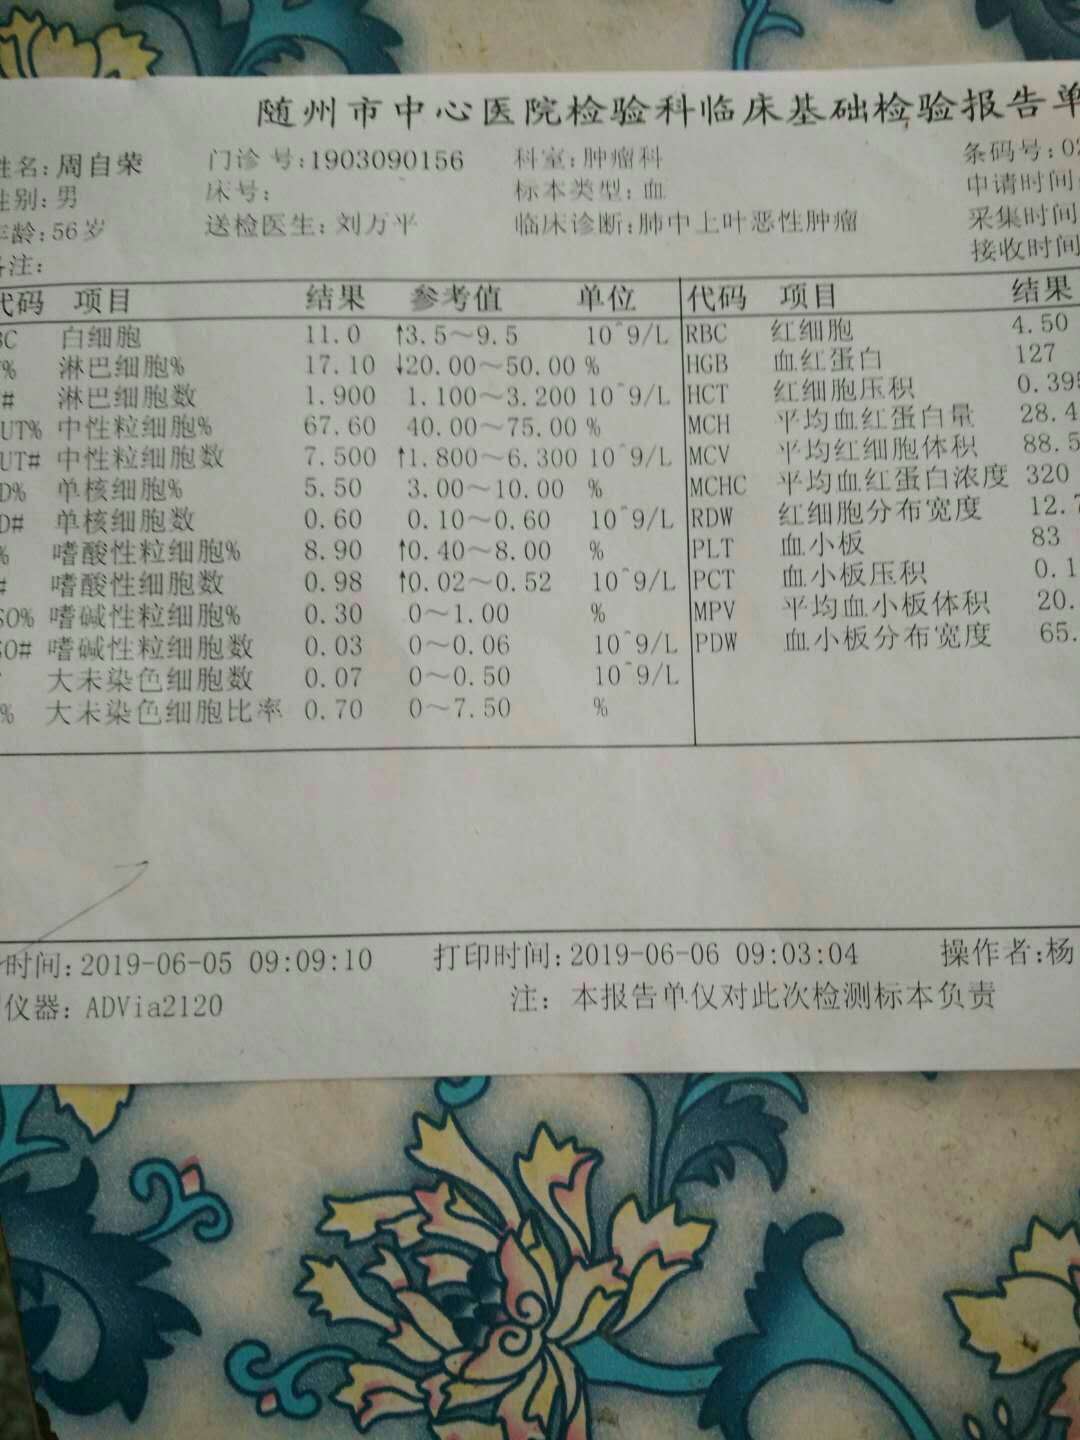 随州市中心医院检验科临床基础检验报告单
姓名:周自荣 门诊号:1903090156 科室:肿瘤科 条码号:02
性别:男 床号: 标本类型:血 申请时间:
年龄:56岁 送检医生:刘万平 临床诊断:肺中上叶恶性肿瘤 采集时间
备注: 接收时间
代码 项目 结果 参考值 单位 代码 项目 结果
BC 白细胞 11.0 ↑3.5～9.5 10^9/L RBC 红细胞 4.50
% 淋巴细胞% 17.10 ↓20.00～50.00 % HGB 血红蛋白 127
# 淋巴细胞数 1.900 1.100～3.200 10^9/L HCT 红细胞压积 0.395
UT% 中性粒细胞% 67.60 40.00～75.00 % MCH 平均血红蛋白量 28.4
UT# 中性粒细胞数 7.500 ↑1.800～6.300 10^9/L MCV 平均红细胞体积 88.5
D% 单核细胞% 5.50 3.00～10.00 % MCHC 平均血红蛋白浓度 320
D# 单核细胞数 0.60 0.10～0.60 10^9/L RDW 红细胞分布宽度 12.7
% 嗜酸性粒细胞% 8.90 ↑0.40～8.00 % PLT 血小板 83
# 嗜酸性细胞数 0.98 ↑0.02～0.52 10^9/L PCT 血小板压积 0.1
SO% 嗜碱性粒细胞% 0.30 0～1.00 % MPV 平均血小板体积 20.
SO# 嗜碱性粒细胞数 0.03 0～0.06 10^9/L PDW 血小板分布宽度 65.
大未染色细胞数 0.07 0～0.50 10^9/L
% 大未染色细胞比率 0.70 0～7.50 %
时间:2019-06-05 09:09:10 打印时间:2019-06-06 09:03:04 操作者:杨
仪器: ADVia2120 注: 本报告单仅对此次检测标本负责